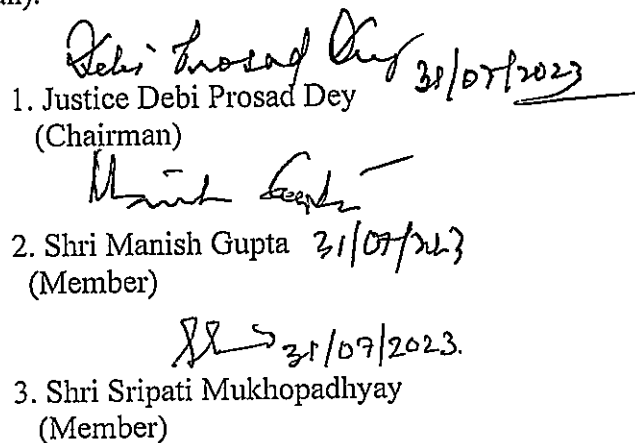 ally.
Debi Prosad Dey 31/07/2023
1. Justice Debi Prosad Dey
(Chairman)
Manish Gupta
2. Shri Manish Gupta 31/07/2023
(Member)
31/07/2023.
3. Shri Sripati Mukhopadhyay
(Member)